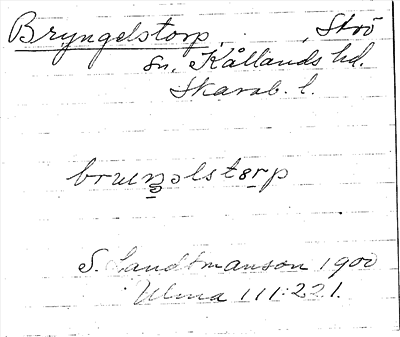 Bryngelstorp, Strö
sn, Kållands hd.
Skarab. l.
S. Landtmanson 1900
Ulma 111:221.